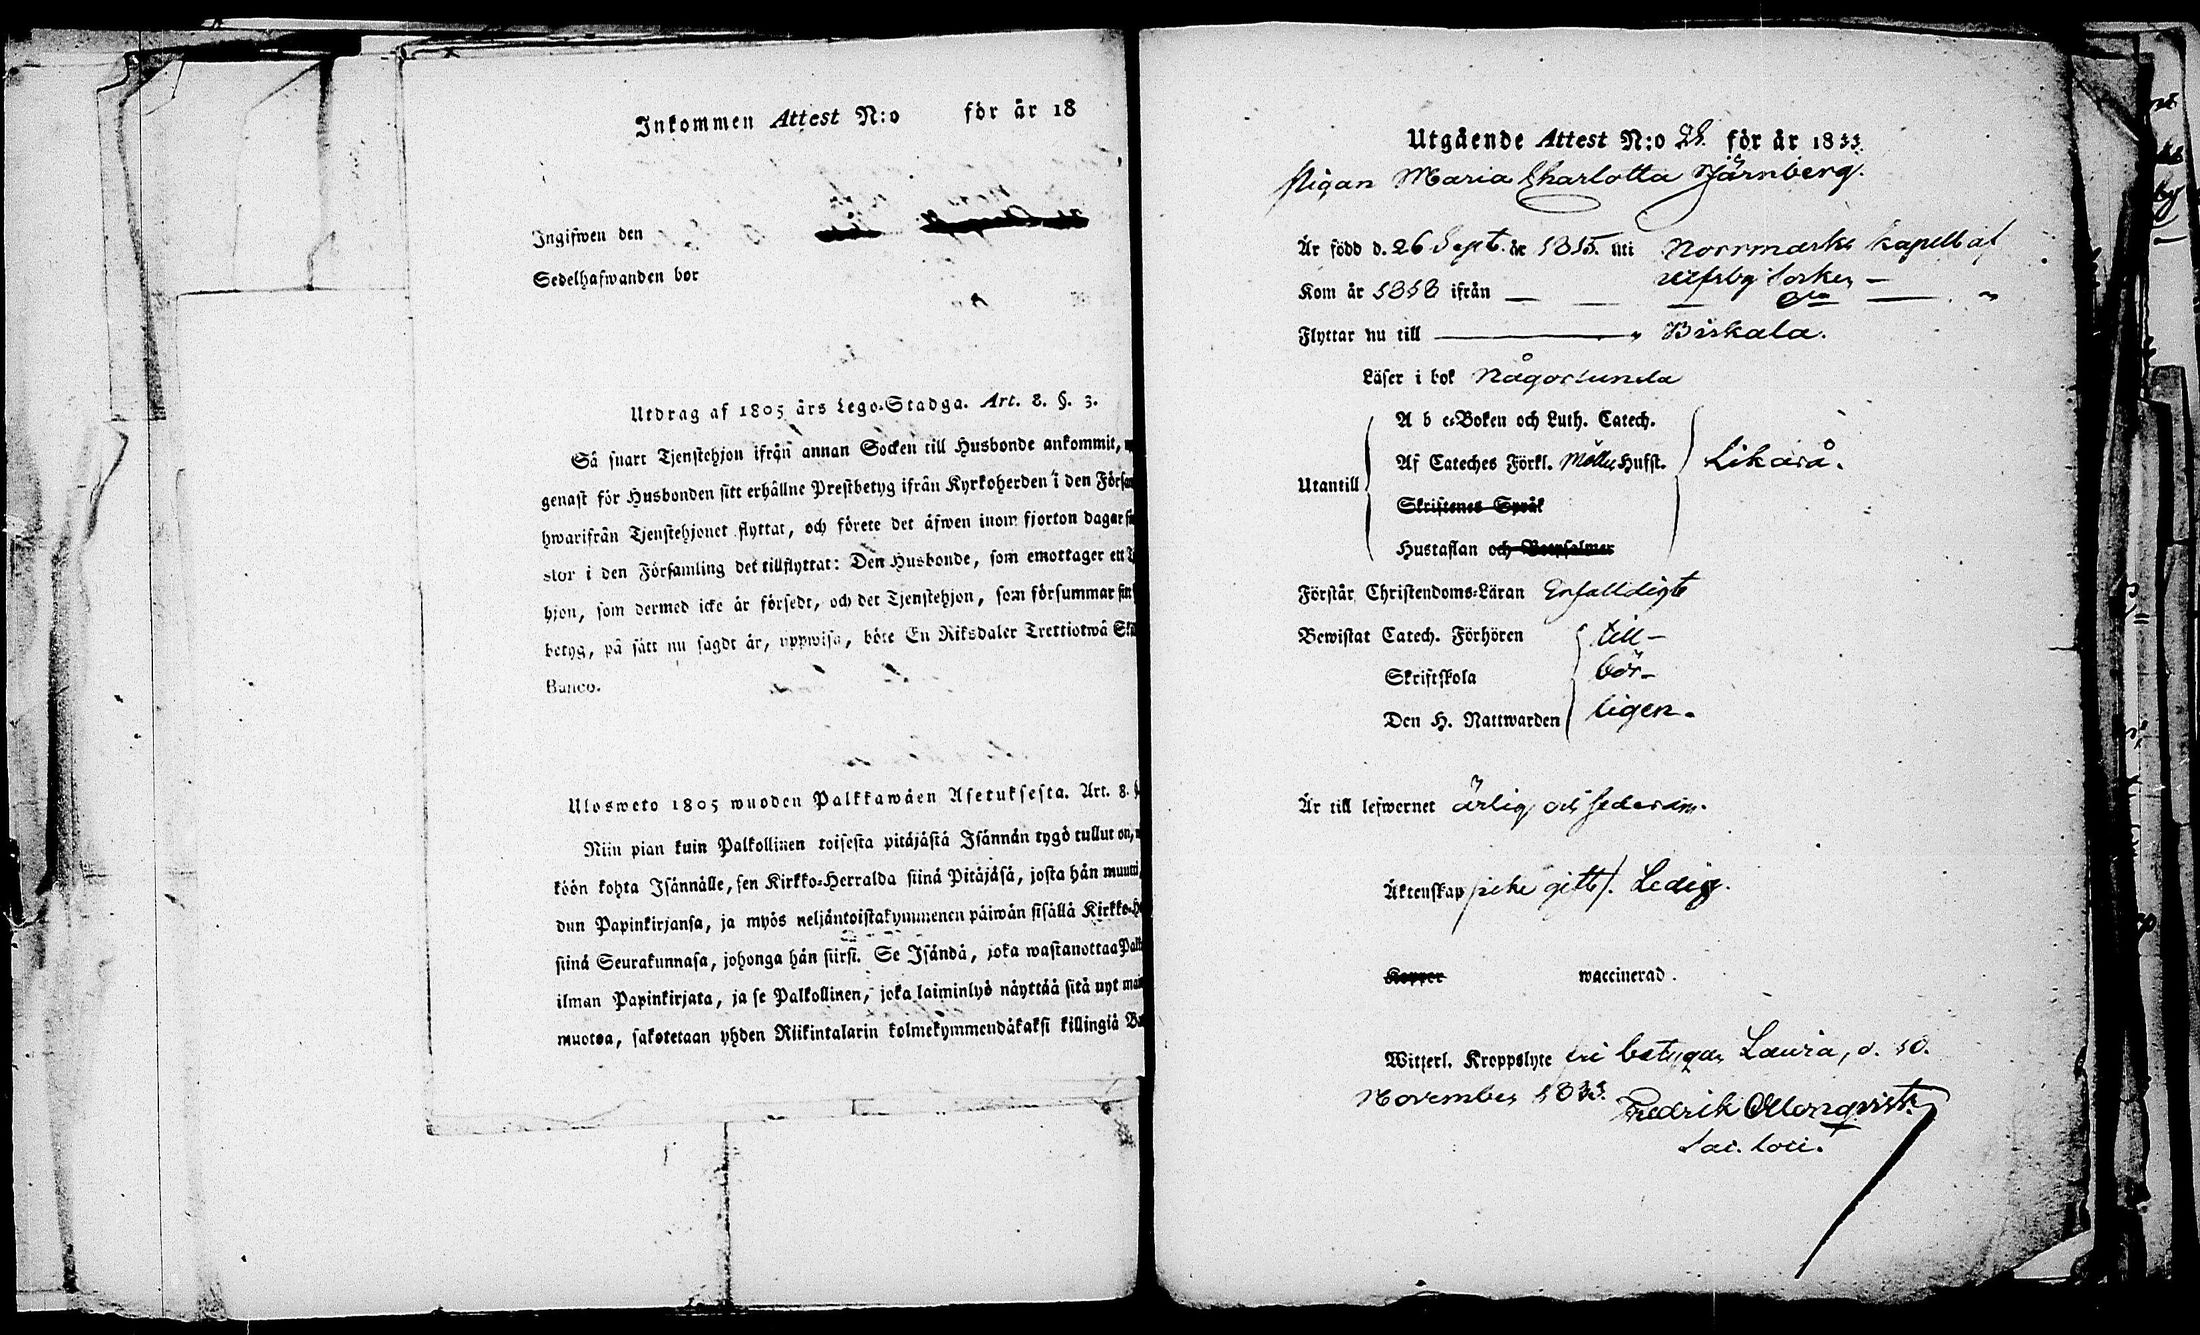 Inkommen Attest N:o för år 18
Ingifwen den
Sedelhafwanden bor
Utdrag af 1805 års Lego-Stadga. Art. 8. §. 3.
Så snart Tjenstehjon ifrån annan Socken till Husbonde ankommit,
genast för Husbonden sitt erhållne Prestbetyg ifrån Kyrkoherden i den Försam
hwarifrån Tjenstehjonet flyttat, och förete det äfwen inom fjorton dagar
stor i den Församling det tillflyttat: Den Husbonde, som emottager ett
hjon, som dermed icke är försedt, och det Tjenstehjon, som försummar sitt
betyg, på sätt nu sagdt är, uppwisa, böte En Riksdaler Trettiotwå
Banco.
Ulosweto 1805 wuoden Palkkawäen Asetuksesta. Art. 8. §
Niin pian kuin Palkollinen toisesta pitäjästä Isännän tygö tullut on,
köön kohta Isännälle, sen Kirkko-Herralda siinä Pitäjäsä, josta hän muutti,
dun Papinkirjansa, ja myös neljäntoistakymmenen päiwän sisällä Kirkko-H
siinä Seurakunnasa, johonga hän siirsi. Se Isändä, joka wastanottaa Palk
ilman Papinkirjata, ja se Palkollinen, joka laiminlyö näyttää sitä nyt
muotoa, sakotetaan yhden Riikintalarin kolmekymmendäkaksi killingiä
Utgående Attest N:o för år 1833.
Pigan Maria Charlotta Järnberg.
Är född d. 26 Sept. år 1815. uti Norrmarks kapell af
Ulfsby Socken –
Kom år 1818 ifrån — — — — "
Flyttar nu till — " Birkala.
Läser i bok Någorlunda
A b c-Boken och Luth. Catech.
Af Cateches Förkl. Möllers Husst. Likaså.
Utantill
Skriftenes Språk
Hustaflan och Botpsalmer
Förstår Christendoms-Läran Enfalldigt
Bewistat Catech. Förhören till-
Skriftskola bör-
Den H. Nattwarden ligen.
Är till lefwernet ärlig och sedesam.
Äktenskap icke gift/. Ledig.
Koppor waccinerad.
Witterl. Kroppslyte fri betygar Lauvia, d. 10.
November 1833.
Fredrik
Sac. loci.